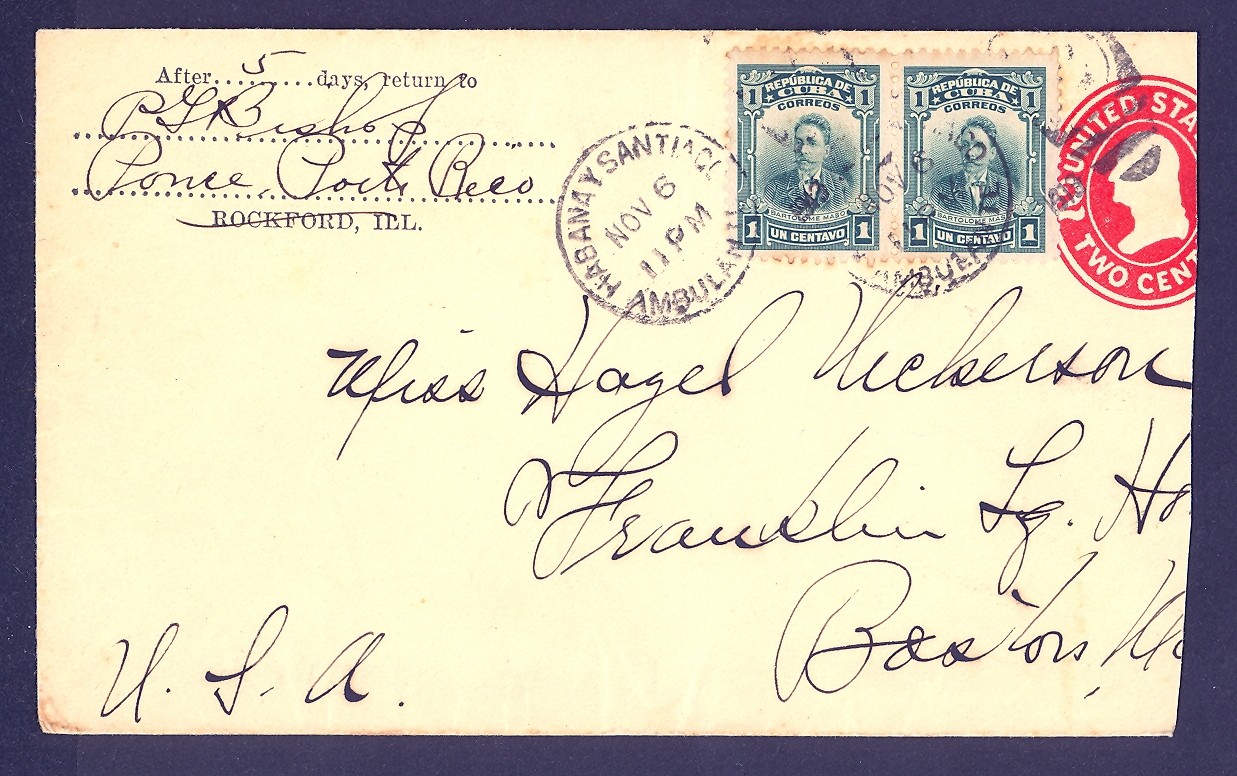 After....5....days, return to
Bishop
Ponce, Porto Rico
ROCKFORD, ILL.
HABANA Y SANTIAGO
NOV 6
11 PM
AMBULAN
1 REPÚBLICA DE 1
CUBA
CORREOS
BARTOLOME MASO
1 UN CENTAVO 1
1 REPÚBLICA DE 1
CUBA
CORREOS
BARTOLOME MASO
1 UN CENTAVO 1
NOV 6
AMBULAN
UNITED STA
TWO CENT
Miss Hazel Nickerson
Franklin Sq. Ho
Boston, Ma
U. S. A.